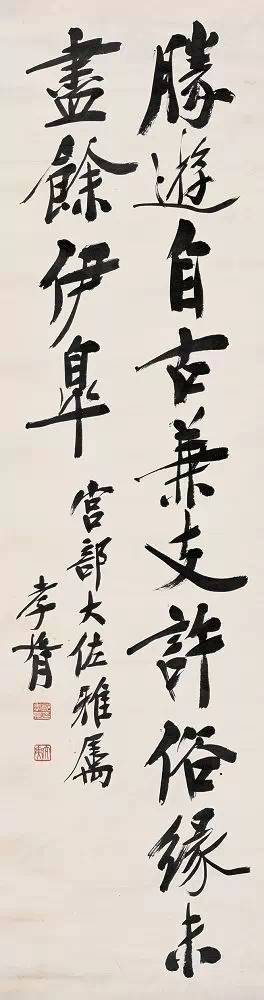 勝遊自古兼支許俗緣未
盡餘伊皐
宮部大佐雅屬
孝胥